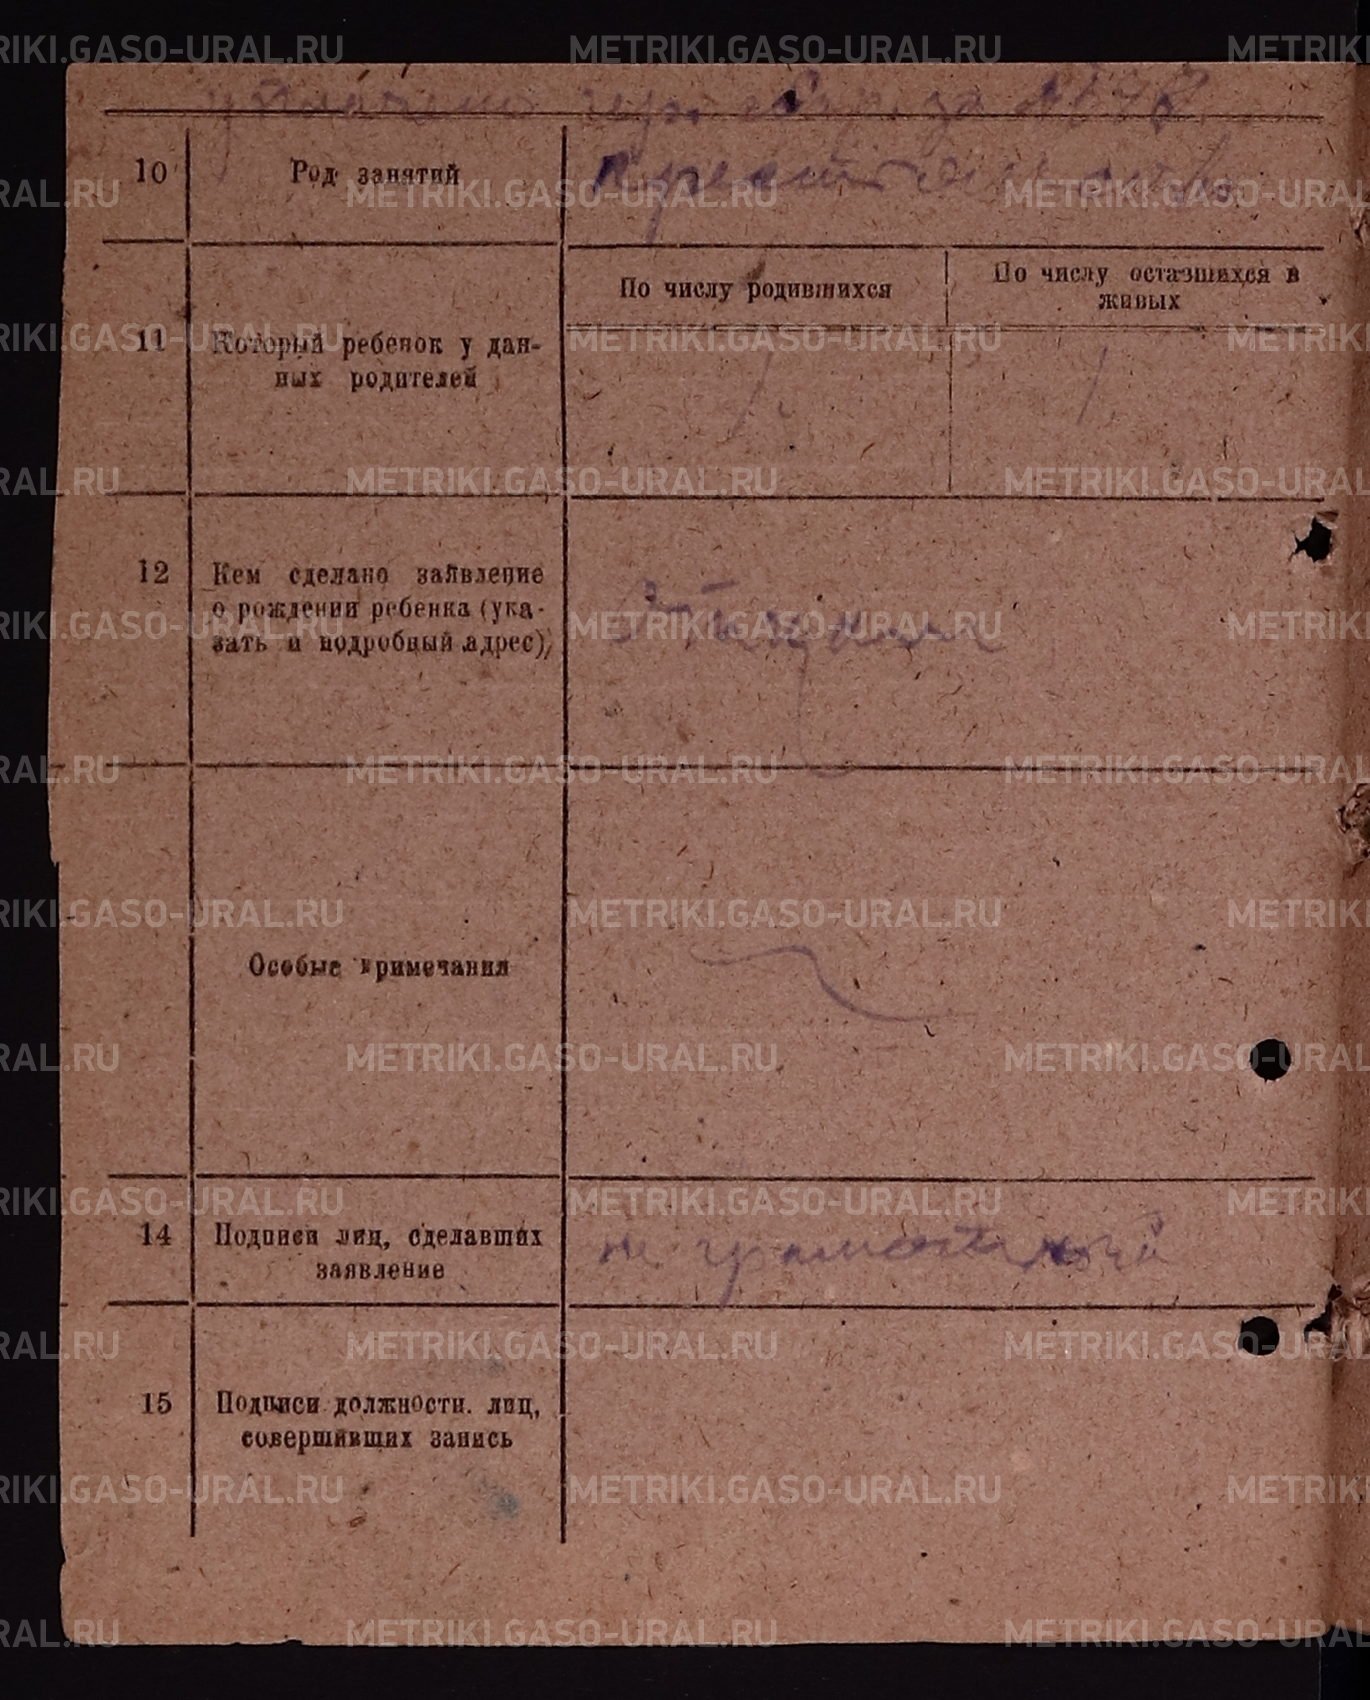 за №
10 Род занятий
11 Который ребенок у дан-
ных родителей
По числу родившихся
По числу оставшихся в
живых
1.
1.
12 Кем сделано заявление
о рождении ребенка (ука-
зать и подробный адрес)
Особые примечания
14 Подписи лиц, сделавших
заявление
не грамотный
15 Подписи должности. лиц,
совершивших запись
METRIKI.GASO-URAL.RU